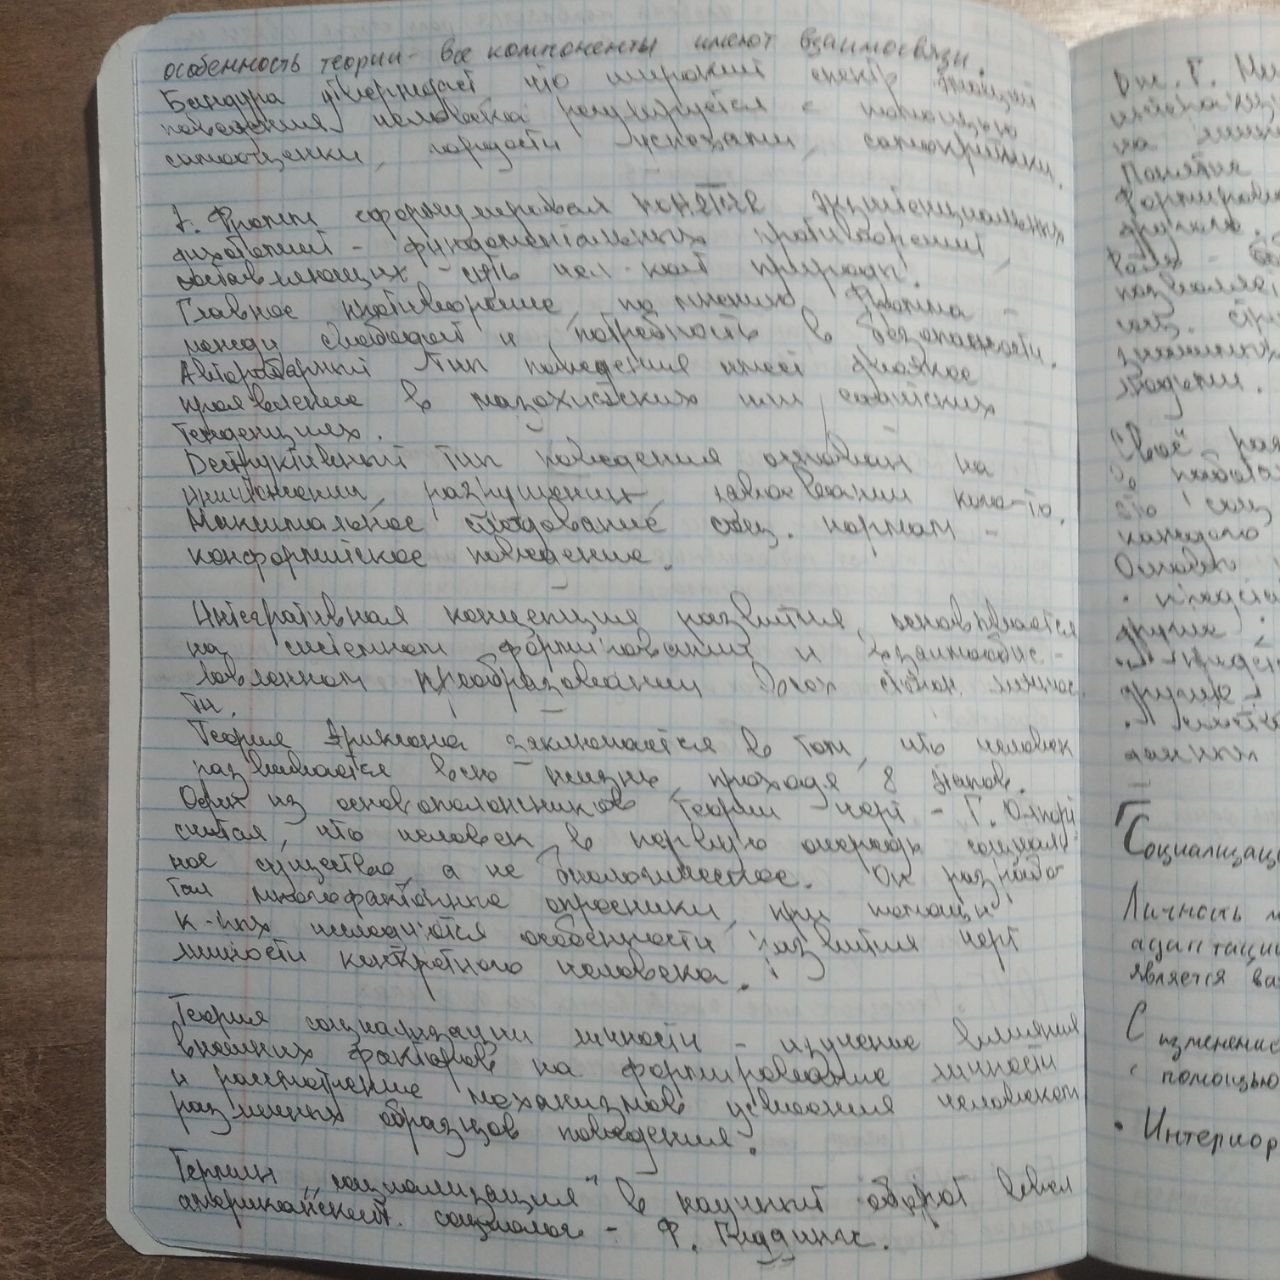 особенность теории - все компоненты имеют взаимосвязи.
Бандура утверждает что широкий спектр
поведения человека регулируется с помощью
самооценки, гордости успехами, самокритики.
Э. Фромм сформулировал понятие экзистенциальных
дихотомий - фундаментальных противоречий,
составляющих суть чел-кой природы.
Главное противоречие, по мнению Фромма -
между свободой и потребность в безопасности.
Авторитарный тип поведения имеет двоякое
проявление в мазохистских или садистских
тенденциях.
Деструктивный тип поведения основан на
уничтожении, разрушении, завоевании кого-то.
Максимальное следование соц. нормам -
конформистское поведение.
Интегративная концепция развития основывается
на системном формировании и взаимообус-
ловленном преобразовании сторон личнос
ти.
Теория Эриксона заключается в том, что человек
развивается всю жизнь, проходя 8 этапов.
Один из основоположников теории черт - Г. Олпорт
считал, что человек в первую очередь социаль
ное существо, а не биологическое. Он разрабо
тал многофакторные опросники, при помощи
к-рых исследуются особенности развития черт
личности конкретного человека.
Теория социализации личности - изучение влияния
внешних факторов на формирование личности
и рассмотрение механизмов усвоения человеком
различных образцов поведения.
Термин „социализация" в научный оборот ввел
американский социолог - Ф. Гиддингс.
Дж. Г. Ми
на
Понятие
формирован
другого.
Роль -
позволяет
соц.
людьми.
это соц
каждого
Основы
других
другие
Социализаци
Личность
адаптаци
является ва
С изменение
с помощью
• Интериор